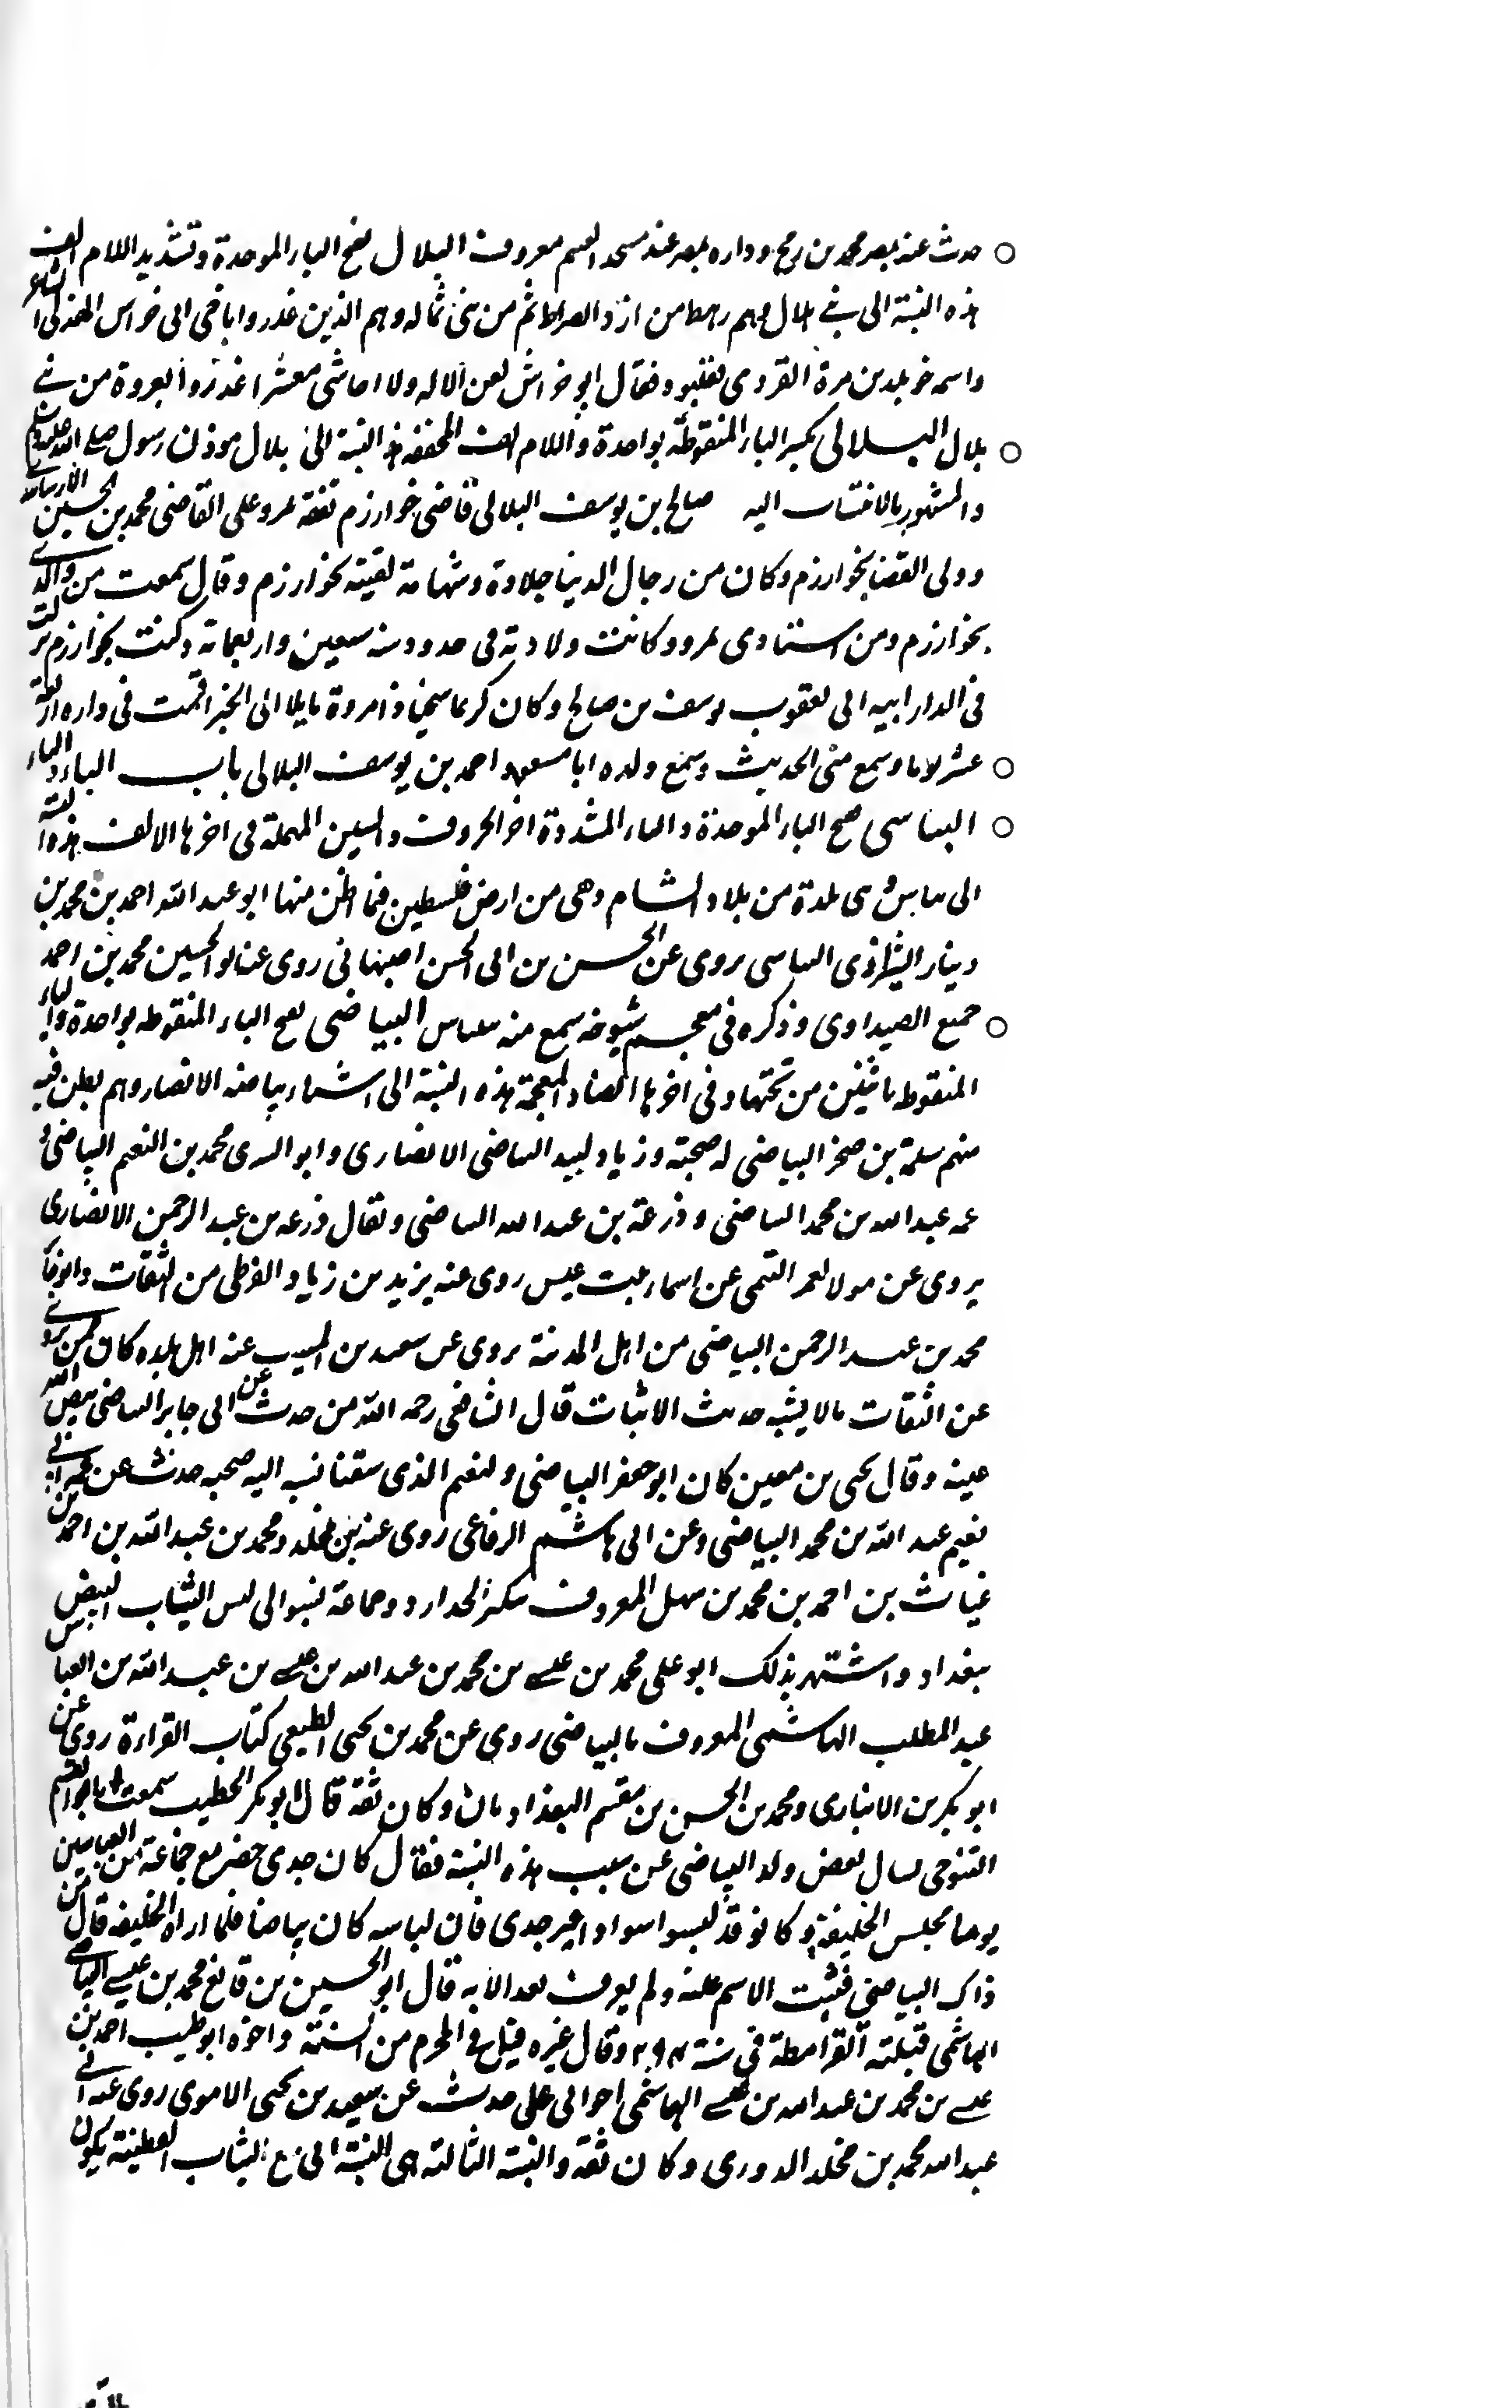 حدث عنه بمصر محمد بن رمح وداره بمصر عند مسجد القسم معروف البلال بفتح الباء الموحدة وتشديد اللام الف
هذه النسبة الى بني بلال وهم رهط من ازد السراة ثم من بني ثماله وهم الذين غدروا باخي ابي خراس الهذلي الشاعر
واسمه خويلد بن مرة القردي فقتلوه فقال ابو خراش لعن الاله ولا احاشي معشرا غدروا بعروة من بني
بلال البلالي بكسر الباء المنقوطة بواحدة واللام الف المخففة هذه النسبة الى بلال موذن رسول الله صلى الله عليه وسلم
والمشهور بالانتساب اليه صالح بن يوسف البلالي قاضي خوارزم تفقه بمرو على القاضي محمد بن الحسين الارسابندي
وولي القضا بخوارزم وكان من رجال الدنيا جلادة وشهامة لقيته بخوارزم وقال سمعت من والدك
بخوارزم ومن استادي بمرو وكانت ولادته في حدود سنه سبعين واربعماته وكنت بخوارزم نزلت
في الدار ابيه ابي يعقوب يوسف بن صالح وكان كريما سخيا ذا مروة مايلا الى الخير اقمت في داره اربعة
عشر يوما وسمع مني الحديث وسمع ولده ابا مسعود احمد بن يوسف البلالي باب الباء والياء
البياسي بفتح الباء الموحدة والياء المشددة اخر الحروف والسين المهملة في اخرها الالف هذه النسبة
الى بياس وهي بلدة من بلاد الشام وهي من ارض فلسطين فيما اظن منها ابو عبد الله احمد بن محمد بن
دينار الشيرازي البياسي يروي عن الحسن بن ابي الحسن اصبهاني روى عنه ابو الحسين محمد بن احمد
جميع الصيداوي وذكره في معجم شيوخه سمع منه ببياس البياضي بفتح الباء المنقوطه بواحدة والياء
المنقوط باثنين من تحتها وفي اخرها الضاد المعجمة هذه النسبة الى اشياء بياضه الانصار وهم بطن فيه
منهم سلمة بن صخر البياضي له صحبته وزياد لبيد البياضي الانصاري وابو السري محمد بن النعيم البياضي و
عمه عبد الله بن محمد البياضي و زرعة بن عبد الله البياضي ويقال زرعه بن عبد الرحمن الانصاري
يروي عن مولا لمعمر التيمي عن اسماء بنت عيس روى عنه يزيد بن زياد القرظي من الثقات وابو جابر
محمد بن عبد الرحمن البياضي من اهل المدينة يروي عن سعيد بن المسيب عنه اهل بلده كان ممن يروي
عن الثقات مالا يشبه حديث الاثبات قال الشافعي رحمه الله من حدث عن ابي جابر البياضي بيض الله
عينه وقال يحيى بن معين كان ابو جعفر البياضي ولنعيم الذي سقنا نسبه اليه صحبه حدث عن
نعيم عبد الله بن محمد البياضي وعن ابي هاشم الرفاعي روى عنه بن مخلد ومحمد بن عبد الله بن احمد بن
غياث بن احمد بن محمد بن سهل المعروف بكرة الحدارد وجماعة نسبوا الى لبس الثياب البيض
ببغداد واشتهر بذلك ابو علي محمد بن عيسى بن محمد بن عبد الله بن عيسى بن عبد الله بن العباس
عبد المطلب الهاشمي المعروف بالبياضي روى عن محمد بن يحيى القطيعي كتاب القراءة روى عن
ابو بكر بن الانباري ومحمد بن الحسن بن مقسم البغداديان وكان ثقة قال ابو بكر الخطيب سمعت ابا القسم
التنوخي يسال بعض ولد البياضي عن سبب هذه النسبة فقال كان جدي حضر مع جماعة من العباسيين
يوما مجلس الخليفة وكانوا قد لبسوا سوادا غير جدي فان لباسه كان بياضا فلما اراه الخليفة قال من
ذاك البياضي فثبت الاسم عليه ولم يعرف بعد الا به قال ابو الحسين بن قانع محمد بن عيسى البياضي
الهاشمي قتلته القرامطة في سنة ٢٩٤ وقال غيره قتل في المحرم من السنة واخوه ابو طيب احمد بن
عيسى بن محمد بن عبد الله بن عيسى الهاشمي اخو ابي علي حدث عن سعيد بن يحيى الاموي روى عنه ابي
عبد الله محمد بن مخلد الدوري وكان ثقة والنسبة الثالثة هي النسبة الى بيع الثياب القطنية يكون